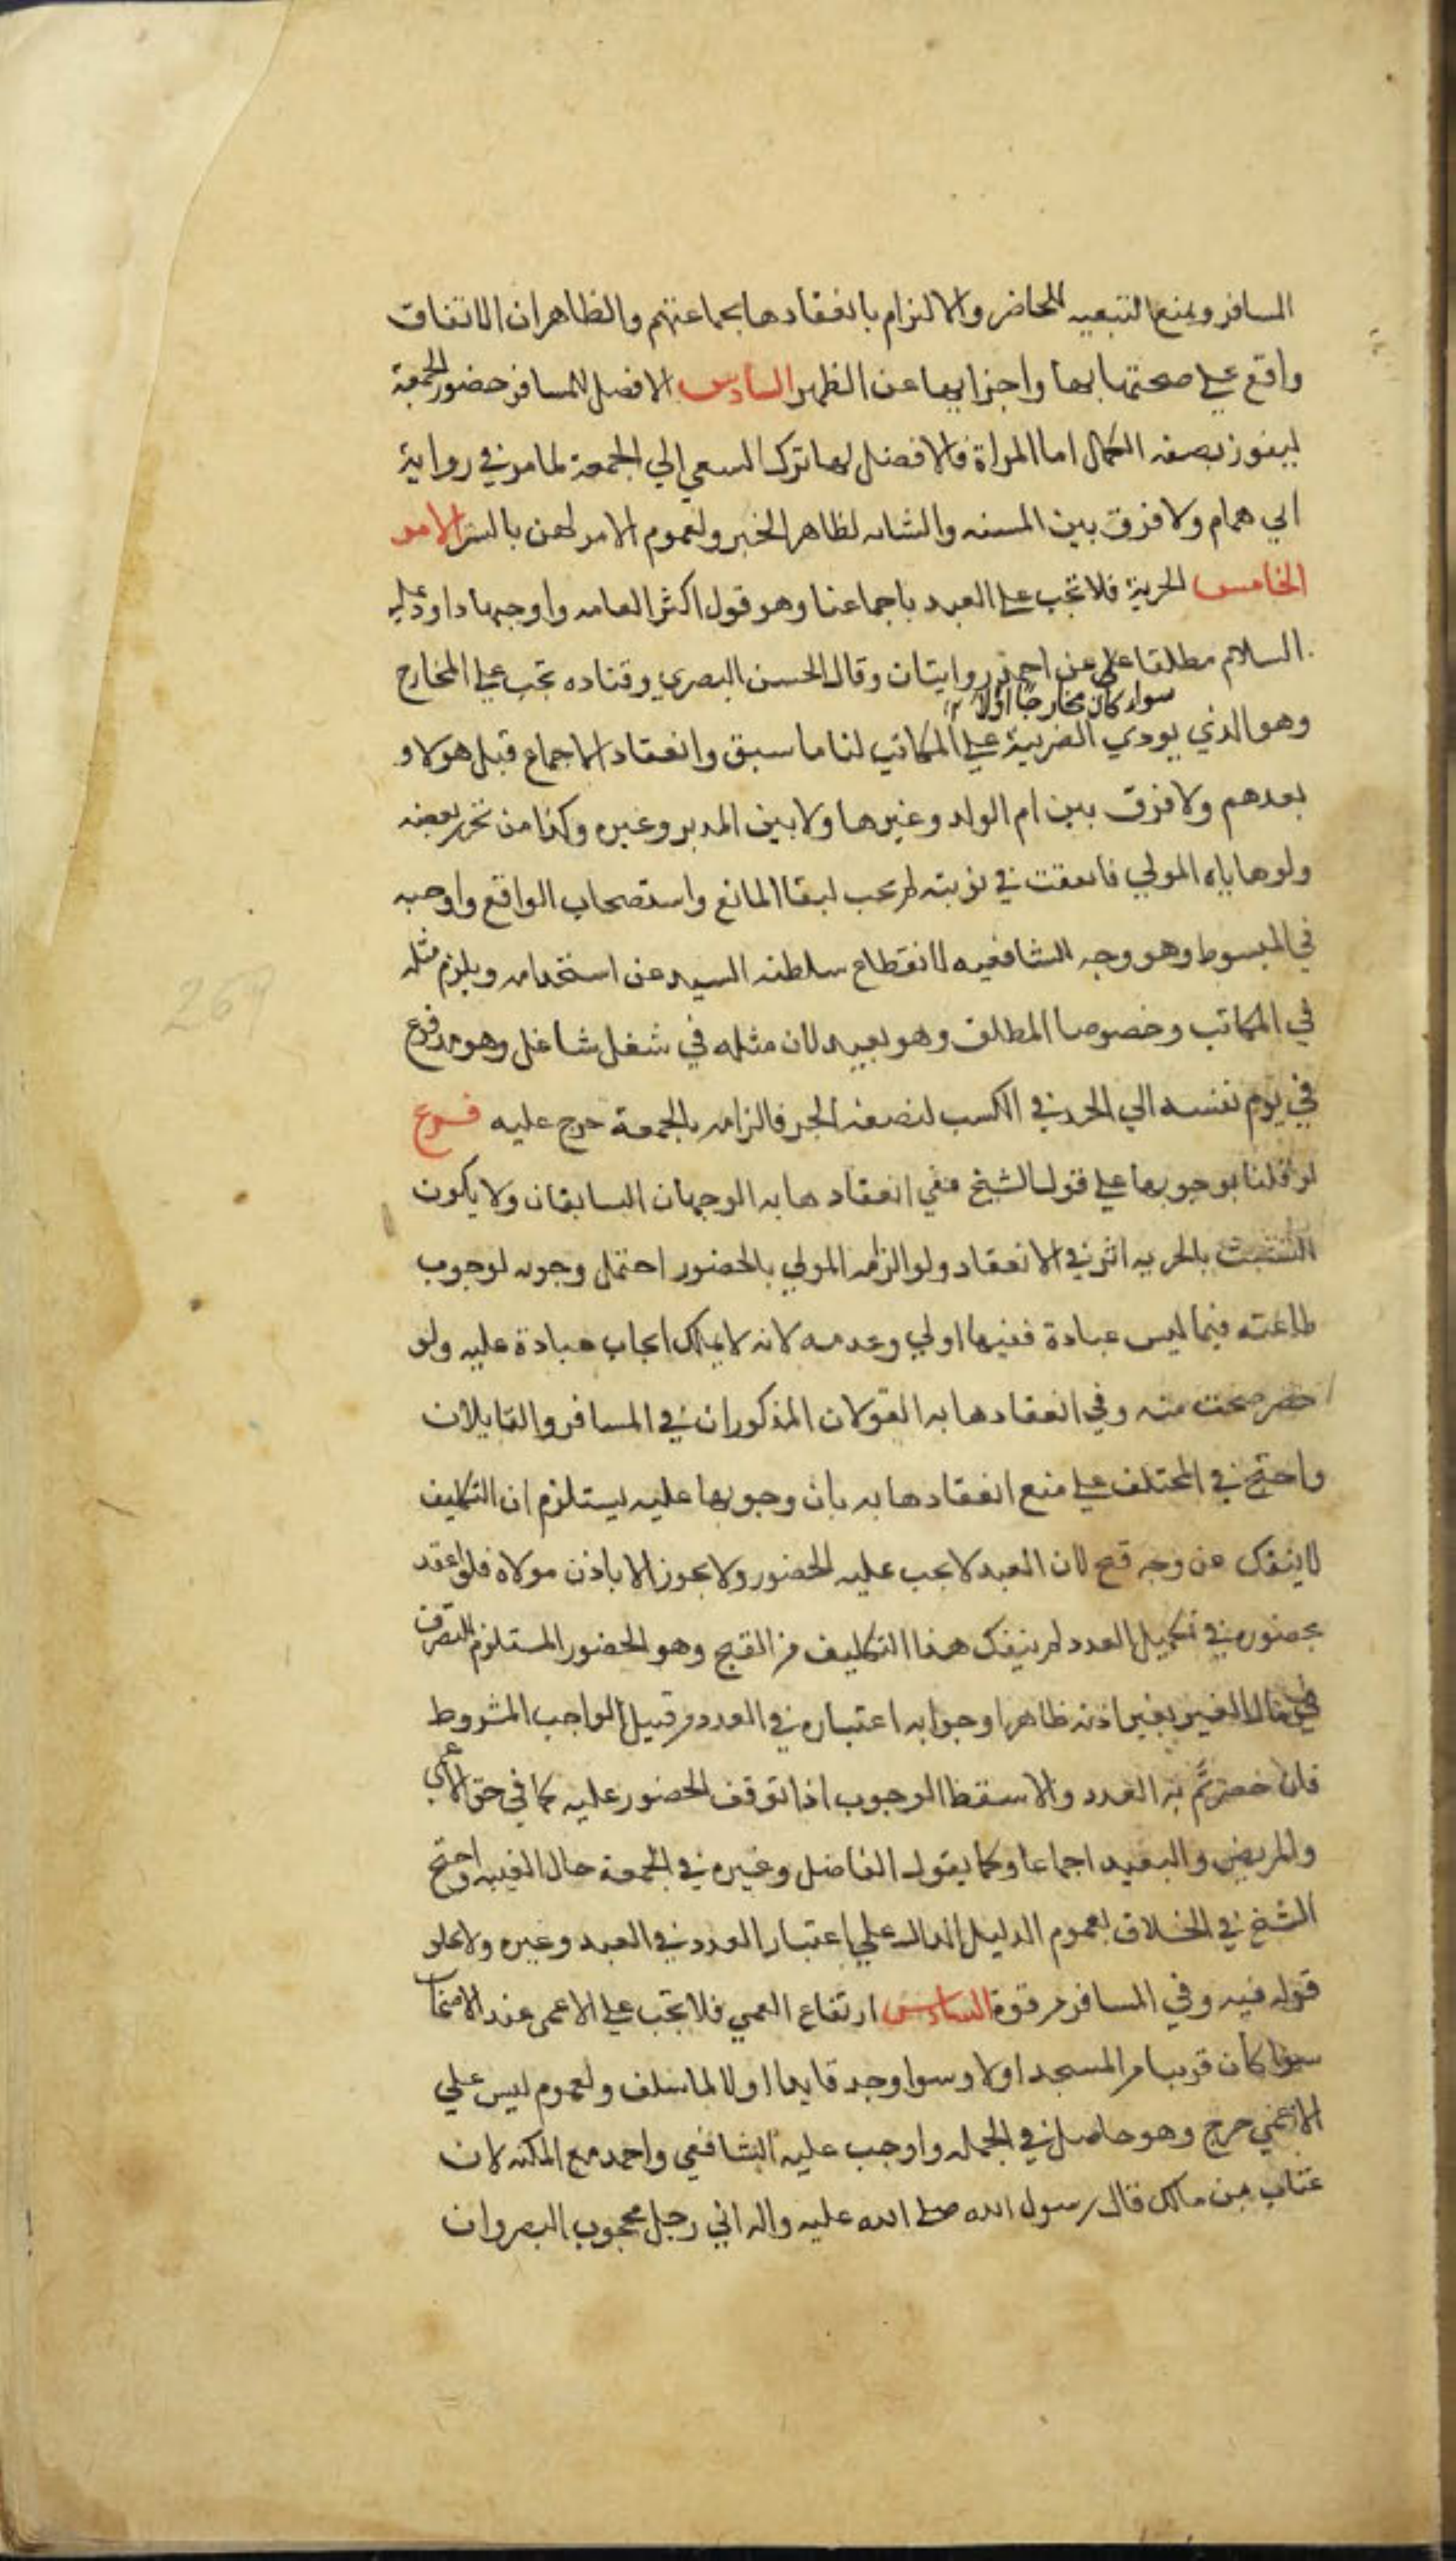 المسافر ويمنع التبعيه للحاضر والالتزام بانعقادها بجماعتهم والظاهر ان الاتفاق
واقع على صحتها بها واجزايها عن الظهر السادس الافضل للمسافر حضور الجمعة
ليفوز بصفه الكمال اما المراة فالافضل لها ترك السعي الي الجمعة لما مر في رواية
ابي همام ولا فرق بين المسنه والشابه لظاهر الخبر ولعموم الامر لهن بالستر الامر
الخامس الحرية فلا تجب على العبد باجماعنا وهو قول اكثر العامه واوجبها داود عليه
السلام مطلقا على عن احمد روايتان وقال الحسن البصري وقتاده تجب على المخارج
سواء كان مخارجا اولا
وهو الذي يودي الضريبة على المكاتب لنا ما سبق وانعقاد الاجماع قبل هولا و
بعدهم ولا فرق بين ام الولد وغيرها ولا بين المدبر وغيره وكذا من تحرر بعضه
ولو هاياه المولي فاتفقت في نوبته لم تجب لبقا المانع واستصحاب الواقع واوجبه
في المبسوط وهو وجه للشافعيه لانقطاع سلطنه السيد عن استخدامه ويلزم مثله
في المكاتب وخصوصا المطلق وهو بعيد لان مثله في شغل شاغل وهو مدفوع
في يوم نفسه الي الجد في الكسب لنصفه الحر فالزامه بالجمعة حرج عليه فرع
لو قلنا بوجوبها على قول الشيخ ففي انعقادها به الوجهان السابقان ولا يكون
التشبث بالحريه اثر في الانعقاد ولو الزمه المولي بالحضور احتمل وجوبه لوجوب
طاعته فيما ليس عبادة ففيها اولي وعدمه لانه لا يملك ايجاب عبادة عليه ولو
حضر صحت منه وفي انعقادها به القولان المذكوران في المسافر والقايلان
واحتج في المختلف على منع انعقادها به بان وجوبها عليه يستلزم ان التكليف
لا ينفك عن وجه قبح لان العبد لا يجب عليه الحضور ولا يجوز الا باذن مولاه فلو اعتد
بحضوره في تكميل العدد لم ينفك هذا التكليف من القبح وهو الحضور المستلزم للتصرف
في مال الغير بغير اذنه ظاهرا وجوابه اعتباره في العدد من قبيل الواجب المشروط
فان حضر تم به العدد والا سقط الوجوب اذا توقف الحضور عليه كما في حق الاعمي
والمريض والبعيد اجماعا وكما يقول الفاضل وغيره في الجمعة حال الغيبه واحتج
الشيخ في الخلاف بعموم الدليل الدال علي اعتبار العدد في العبد وغيره ولا يخلو
قوله فيه وفي المسافر من قوة السادس ارتفاع العمي فلا تجب على الاعمى عند الاصحاب
سوا كان قريبا من المسجد اولا وسوا وجد قايدا اولا لما سلف ولعموم ليس علي
الاعمي حرج وهو حاصل في الجمله واوجب عليه الشافعي واحمد مع المكنه لان
عتاب بن مالك قال رسول الله صلى الله عليه واله اني رجل محجوب البصر وان
269